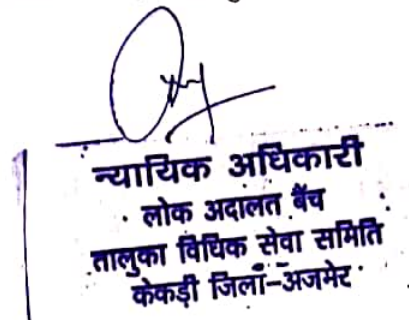 न्यायिक अधिकारी
लोक अदालत बैंच
तालुका विधिक सेवा समिति
केकड़ी जिला-अजमेर